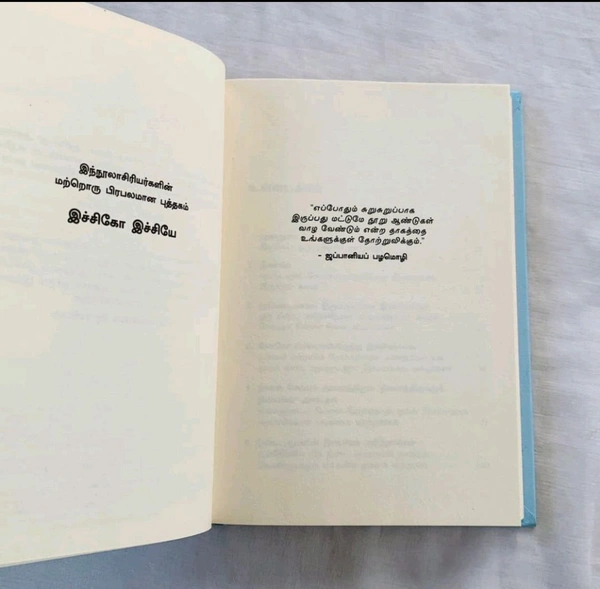 இந்நூலாசிரியர்களின்
மற்றொரு பிரபலமான புத்தகம்
இச்சிகோ இச்சியே
"எப்போதும் சுறுசுறுப்பாக
இருப்பது மட்டுமே நூறு ஆண்டுகள்
வாழ வேண்டும் என்ற தாகத்தை
உங்களுக்குள் தோற்றுவிக்கும்."
- ஜப்பானியப் பழமொழி